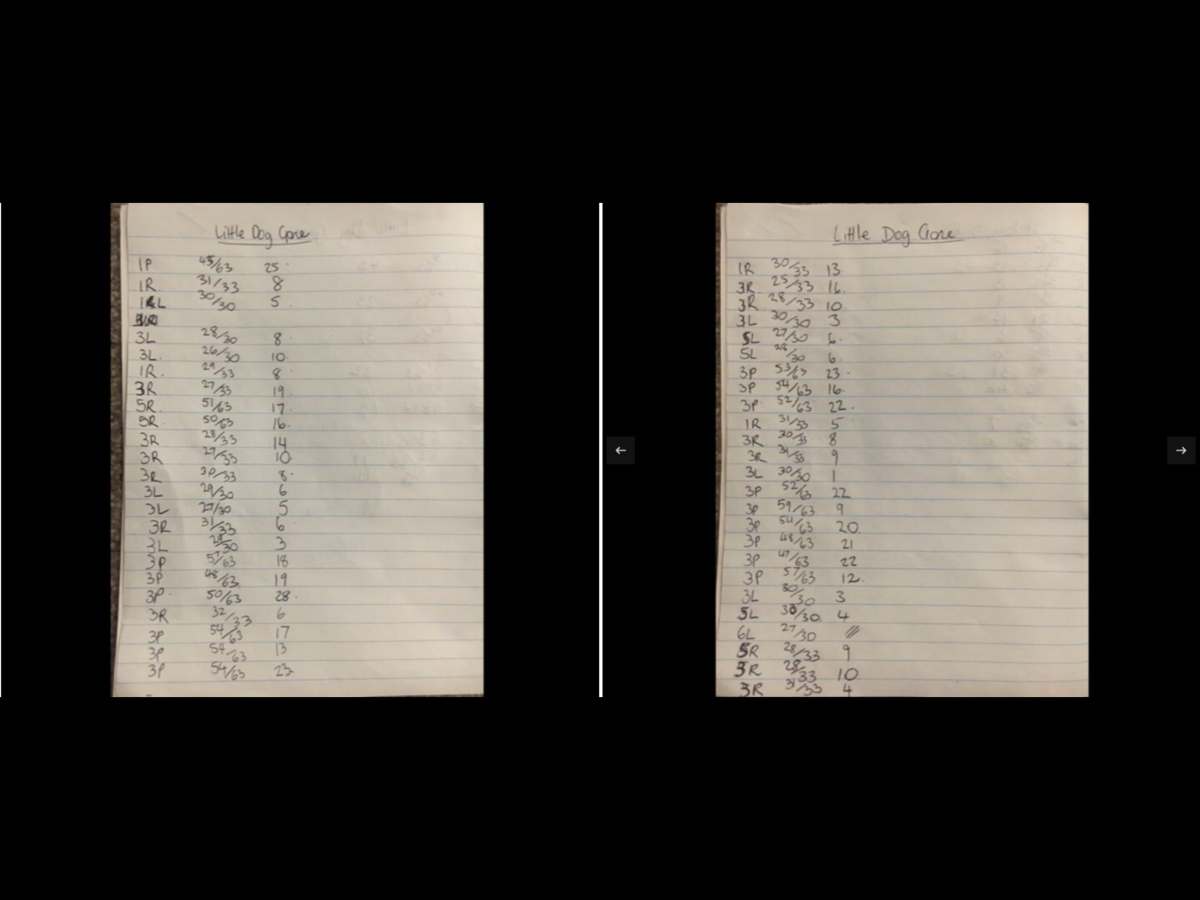 Little Dog Gone
1P 45/63 25
1R 31/33 8
1L 30/30 5
3L 28/30 8
3L 26/30 10
1R 29/33 8
3R 27/33 19
5R 51/63 17
5R 50/63 16
3R 28/33 14
3R 29/33 10
3R 30/33 8
3L 29/30 6
3L 27/30 5
3R 31/33 6
3L 28/30 3
3P 57/63 18
3P 48/63 19
3P 50/63 28
3R 32/33 6
3P 54/63 17
3P 54/63 13
3P 54/63 23
Little Dog Gone
1R 30/33 13
3R 25/33 16
3R 28/33 10
3L 30/30 3
5L 27/30 6
5L 28/30 6
3P 53/63 23
3P 54/63 16
3P 52/63 22
1R 31/33 5
3R 30/33 8
3R 31/33 9
3L 30/30 1
3P 52/63 22
3P 59/63 9
3P 54/63 20
3P 48/63 21
3P 47/63 22
3P 57/63 12
3L 30/30 3
5L 30/30 4
6L 27/30
5R 28/33 9
3R 28/33 10
3R 31/33 4